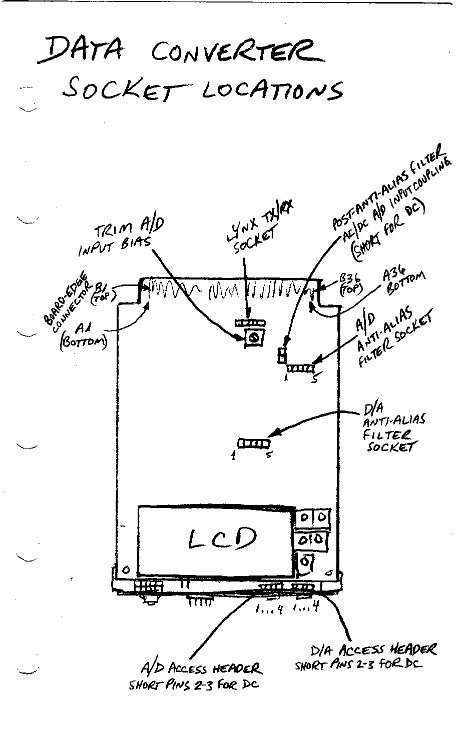 DATA CONVERTER
SOCKET LOCATIONS
TRIM A/D
INPUT BIAS
LYNX TX/RX
SOCKET
POST-ANTI-ALIAS FILTER
AC/DC A/D INPUT COUPLING
(SHORT FOR DC)
BOARD-EDGE
CONNECTOR
B1
(TOP)
A1
(BOTTOM)
B36
(TOP)
A36
BOTTOM
A/D
ANTI-ALIAS
FILTER SOCKET
1 5
D/A
ANTI-ALIAS
FILTER
SOCKET
1 5
LCD
1...4 1...4
A/D ACCESS HEADER
SHORT PINS 2-3 FOR DC
D/A ACCESS HEADER
SHORT PINS 2-3 FOR DC